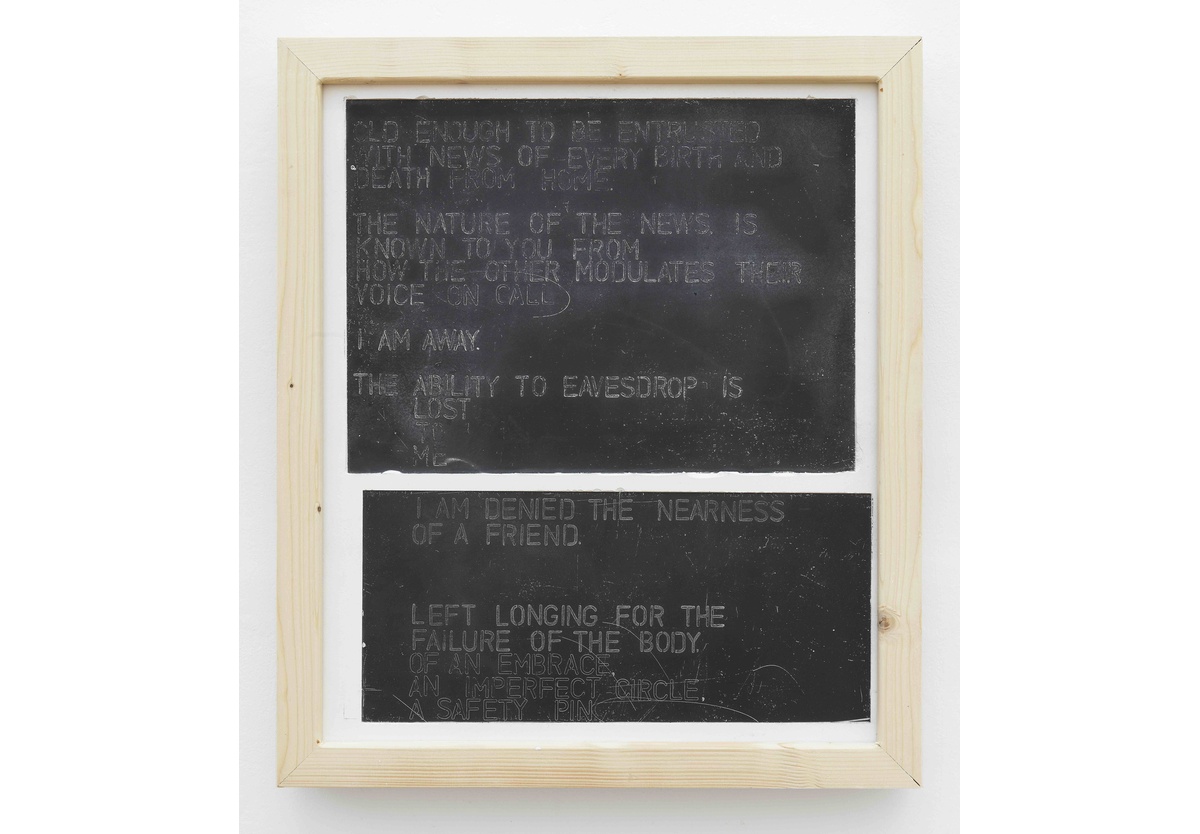 OLD ENOUGH TO BE ENTRUSTED
WITH NEWS OF EVERY BIRTH AND
DEATH FROM HOME.
THE NATURE OF THE NEWS IS
KNOWN TO YOU FROM
HOW THE OTHER MODULATES THEIR
VOICE ON CALL
I AM AWAY.
THE ABILITY TO EAVESDROP IS
LOST
TO
ME
I AM DENIED THE NEARNESS
OF A FRIEND.
LEFT LONGING FOR THE
FAILURE OF THE BODY.
OF AN EMBRACE,
AN IMPERFECT CIRCLE,
A SAFETY PIN